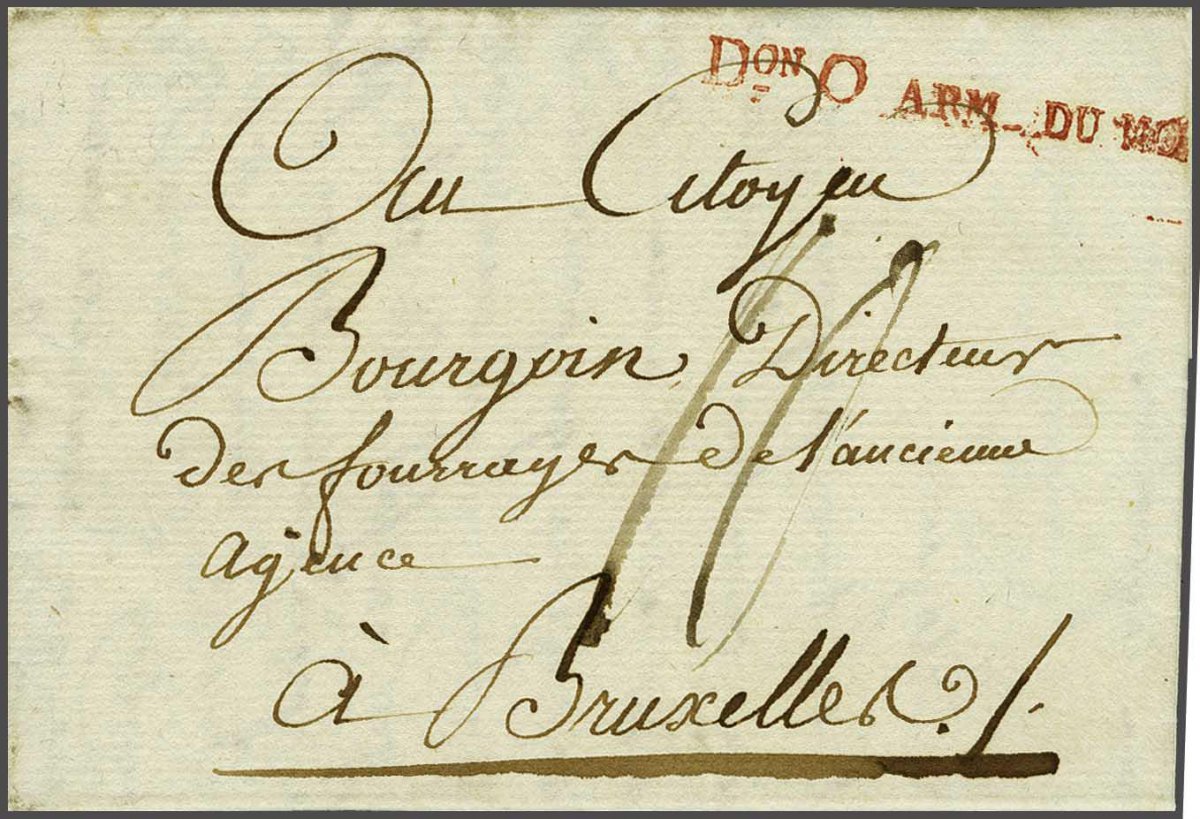 DON O ARM. DU MO
Au Citoyen
Bourgoin Directeur
des fourrages de l'ancienne
agence
à Bruxelles ./.